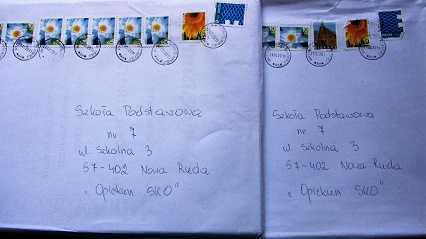 Szkoła Podstawowa
nr 7
ul. Szkolna 3
57-402 Nowa Ruda
"Opiekun SKO"
Szkoła Podstawowa
nr 7
ul. Szkolna 3
57-402 Nowa Ruda
"Opiekun SKO"